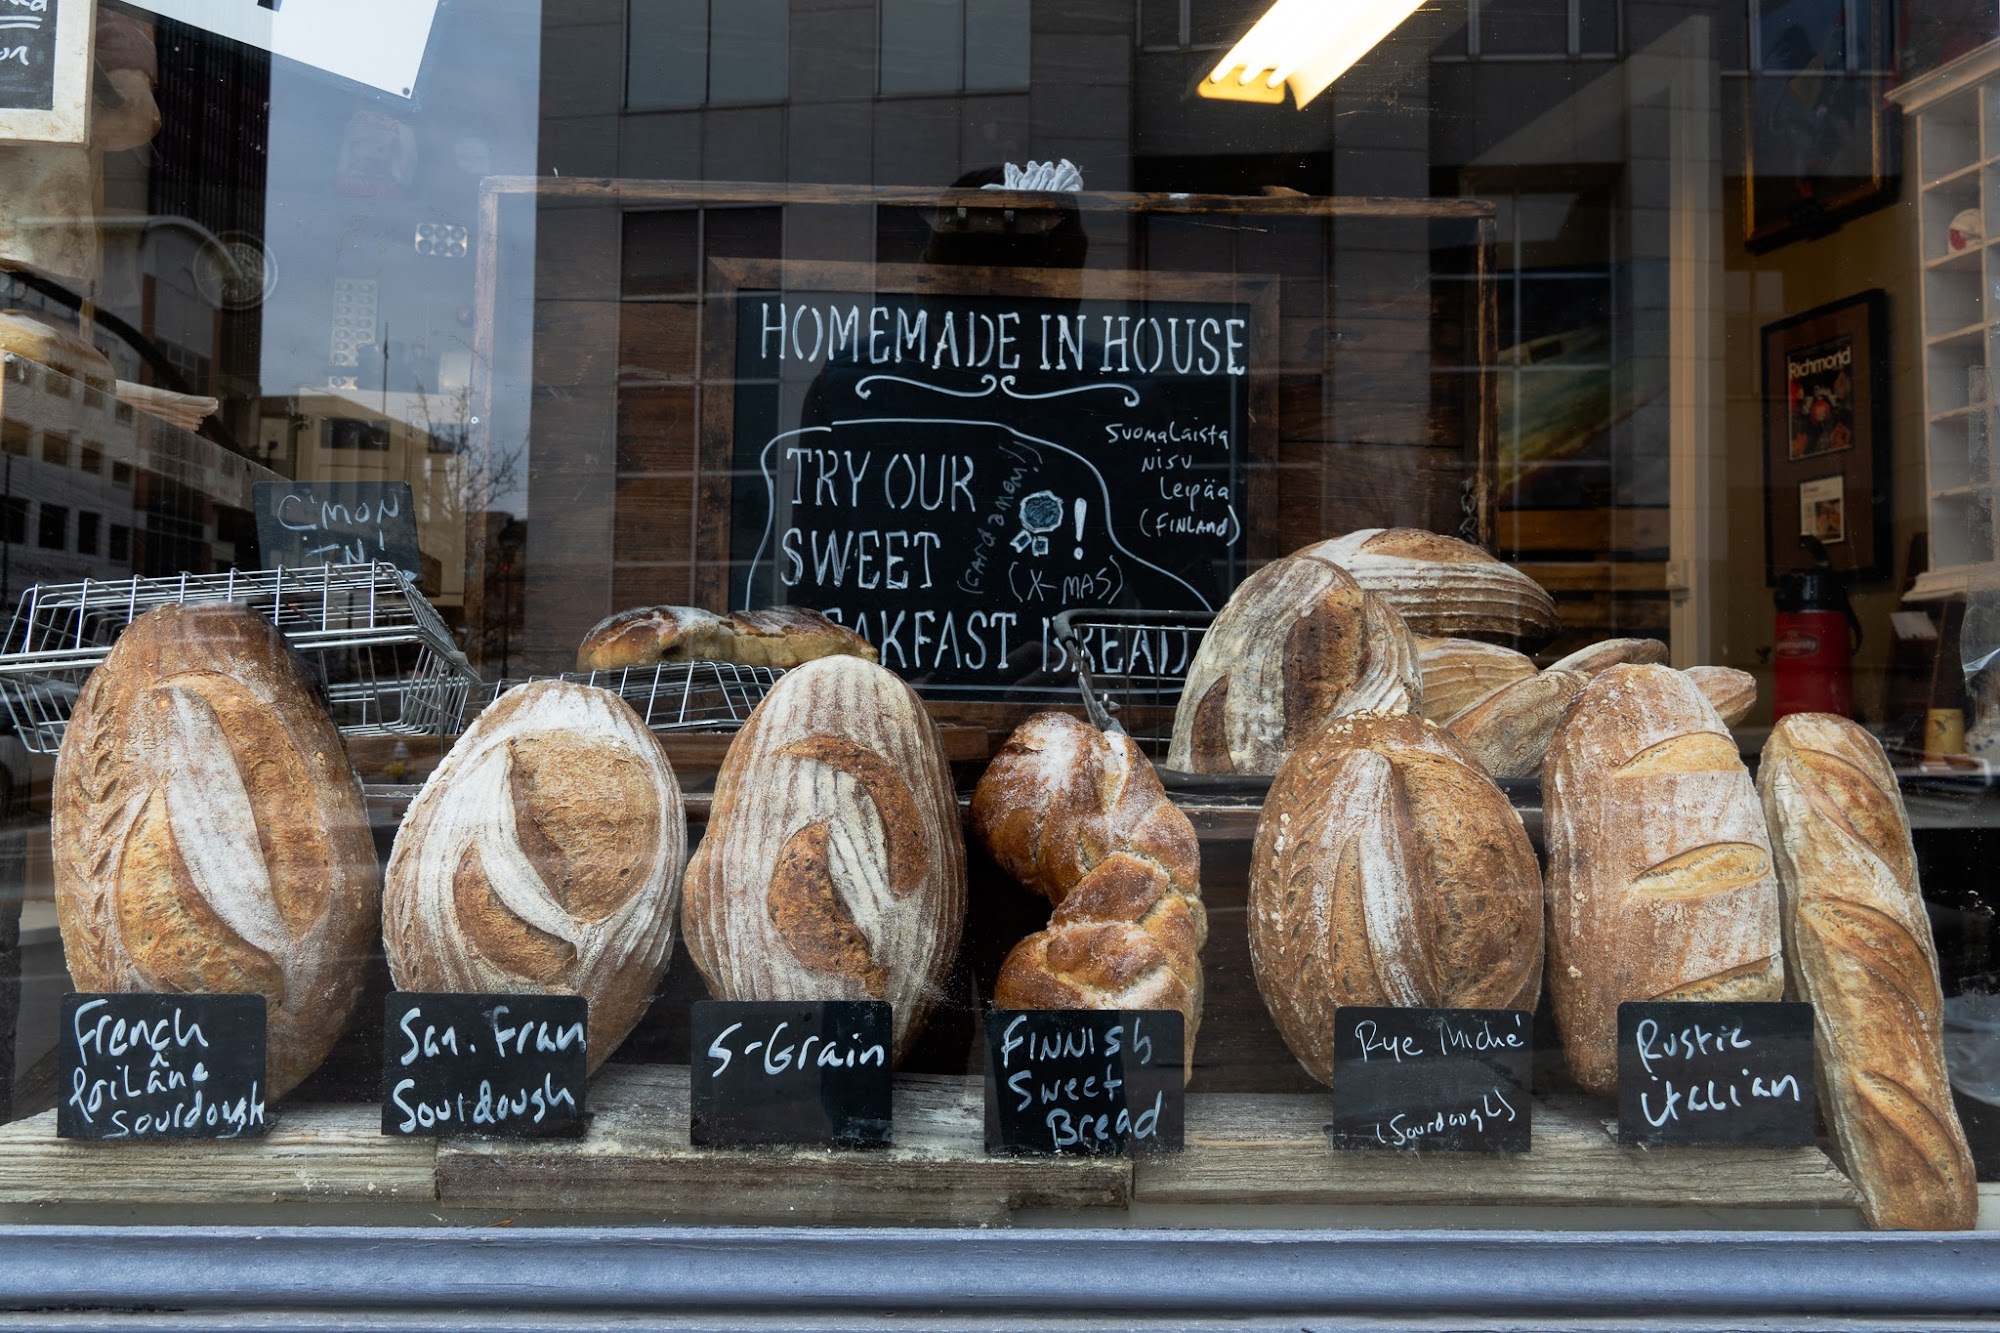 on
HOMEMADE IN HOUSE
TRY OUR
SWEET
EAKFAST BREAD
(CARDAMON!)
!
(X-MAS)
SUOMALAISTA
NISU
LEIPÄÄ
(FINLAND)
C'MON
IN!
Richmond
French
Poilâne
Sourdough
San. Fran
Sourdough
5-Grain
FINNISh
Sweet
Bread
Rye Miché
(Sourdough)
Rustic
italian